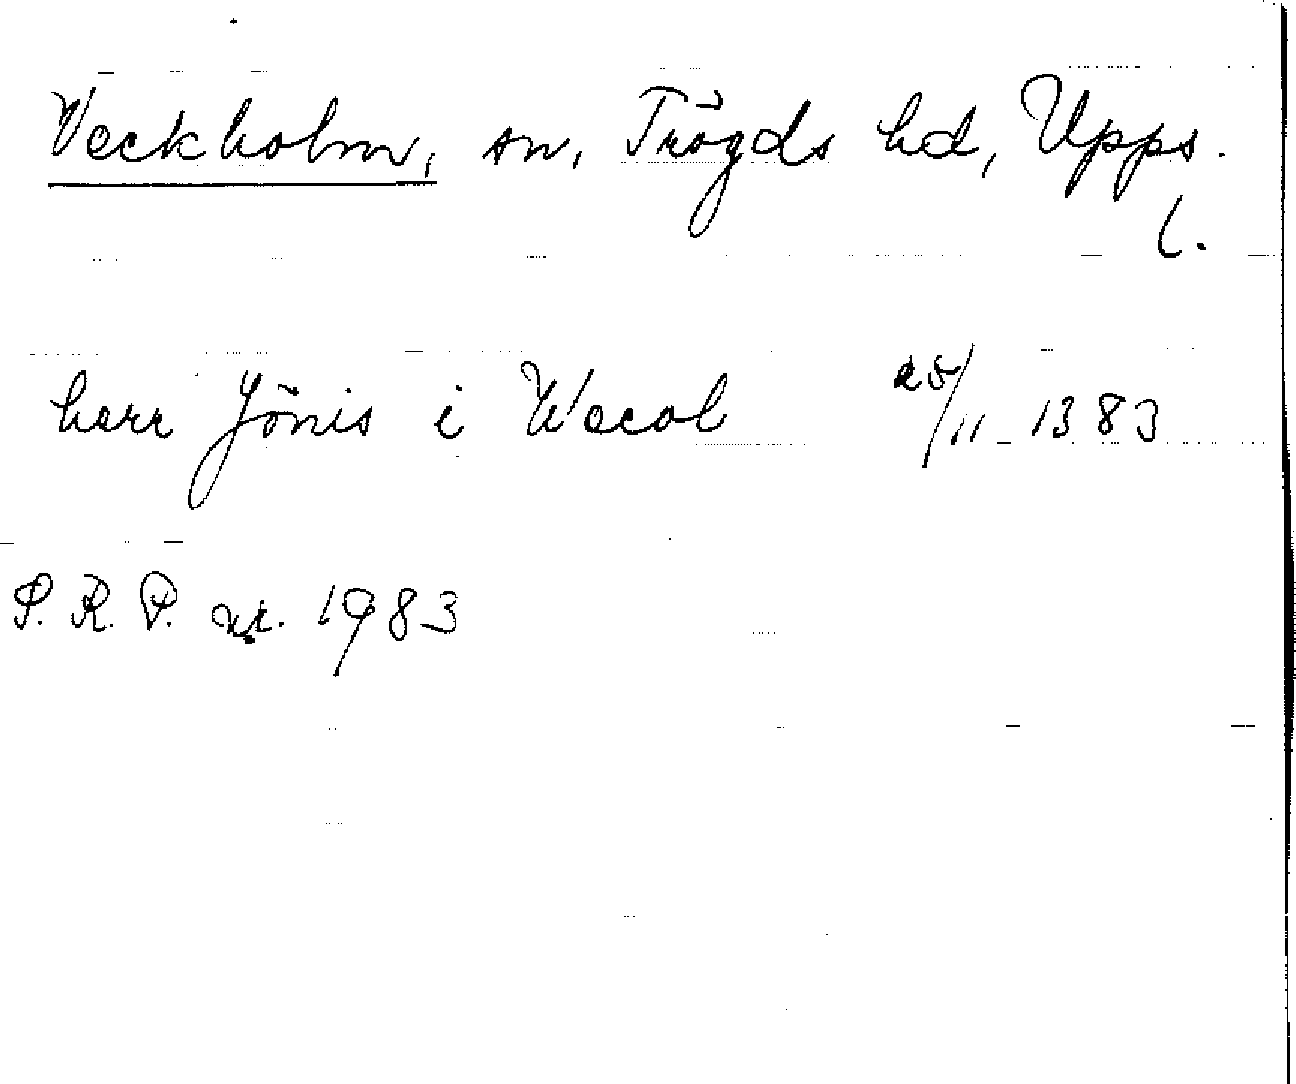 Veckholm, sn, Trögds hd, Upps.
l.
herr Jönis i Wecol 25/11 1383
S. R. P. nr. 1983